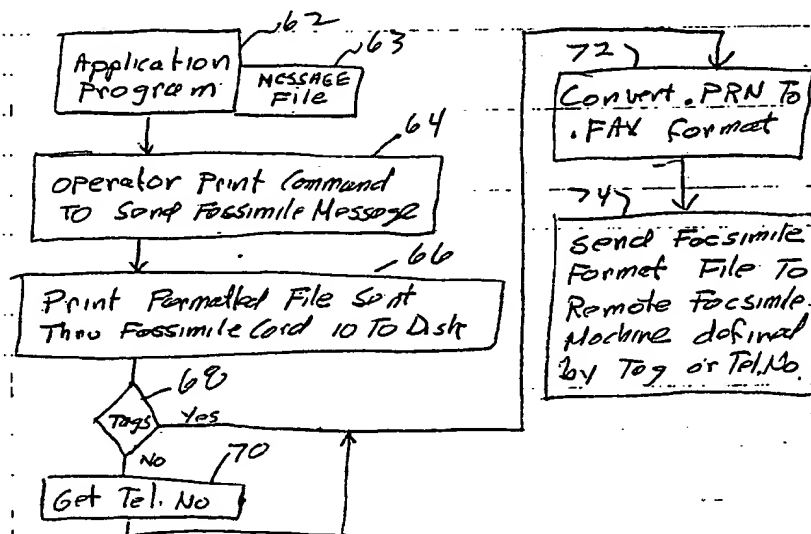 62
63
Application
Program
MESSAGE
File
64
Operator Print Command
To Send Fassimile Message
66
Print Formatted File Sent
Thru Fassimile Card 10 To Disk
68
Tags
Yes
No
70
Get Tel. No
72
Convert .PRN To
.FAX format
74
Send Facsimile
Format File To
Remote Facsimile
Machine defined
by Tag or Tel.No.